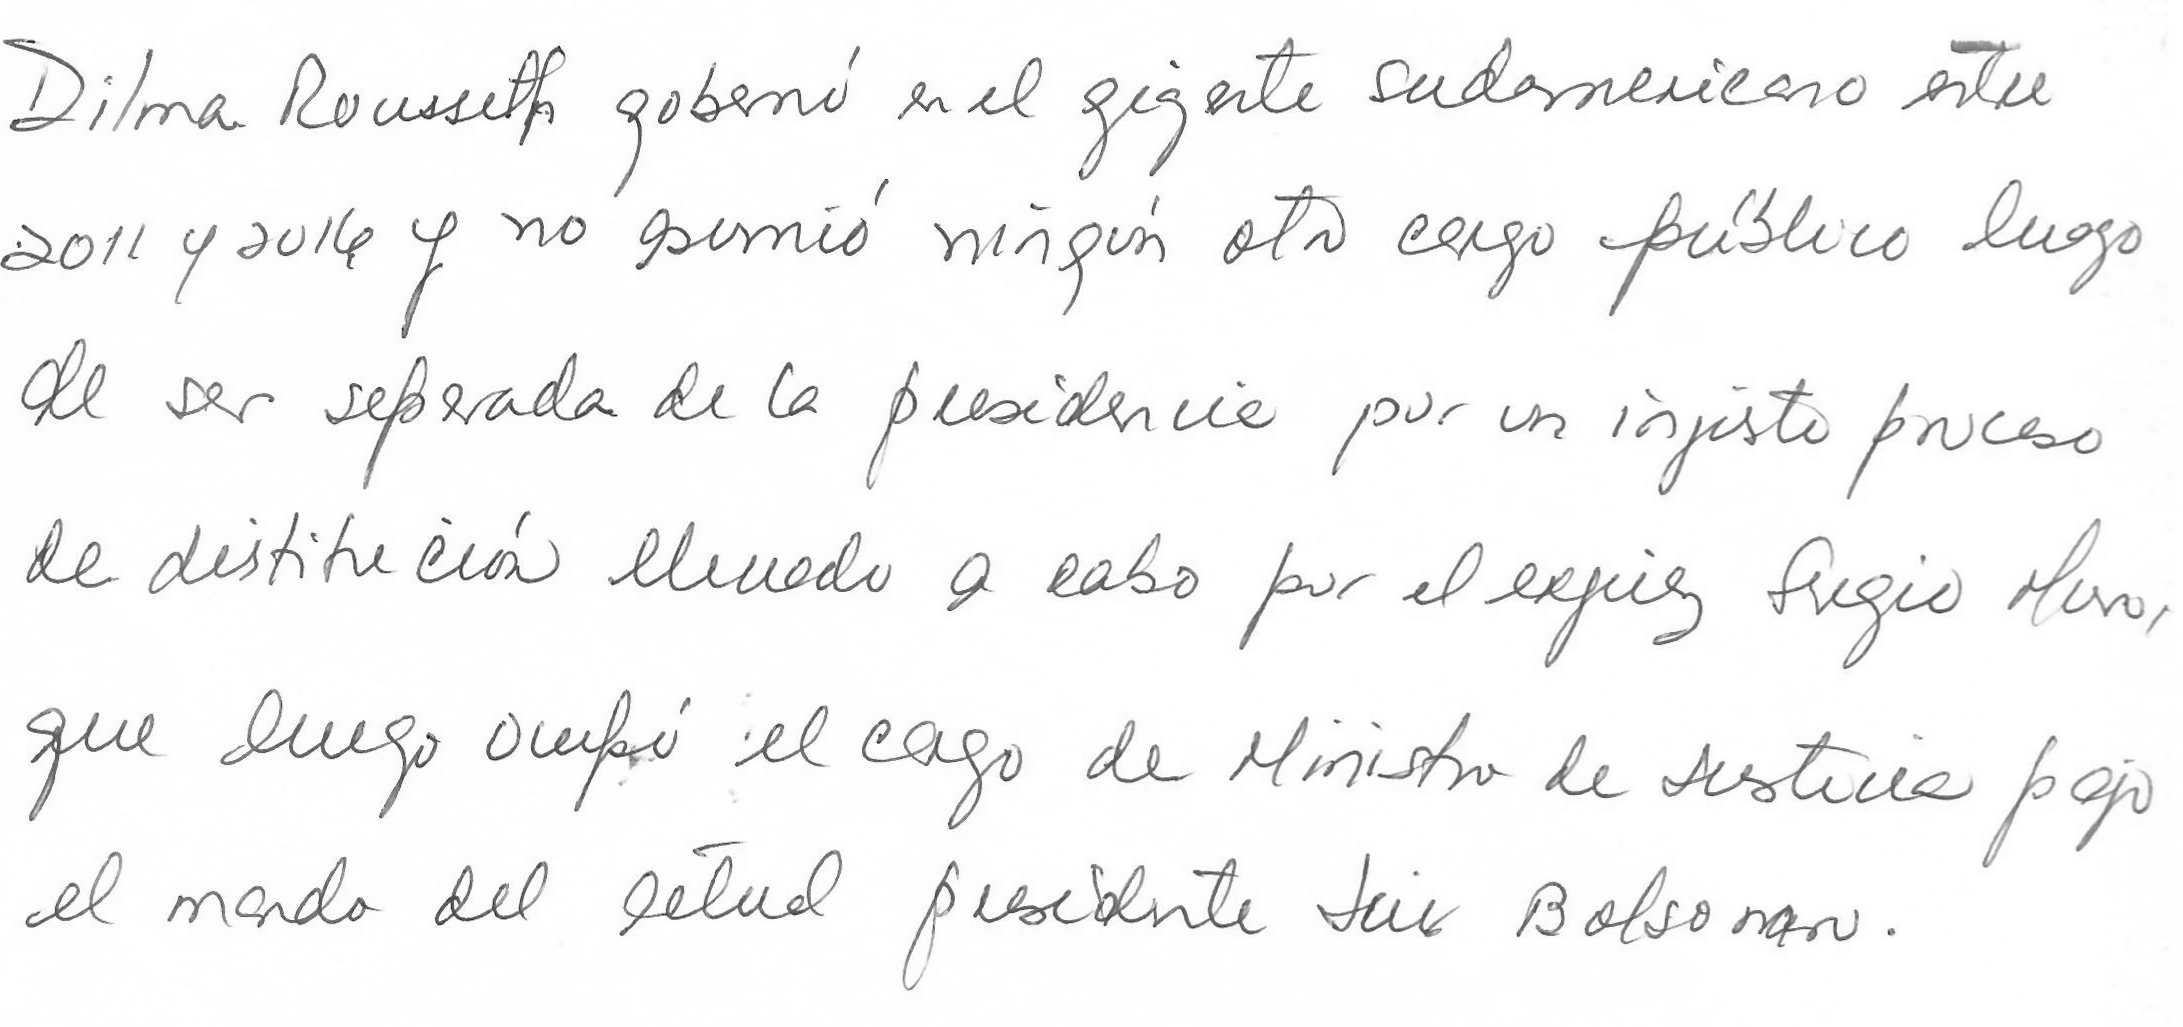 Dilma Rousseff gobernó en el gigante sudamericano entre
2011 y 2016 y no asumió ningún otro cargo público luego
de ser separada de la presidencia por un injusto proceso
de distitución llevado a cabo por el exjuez Sergio Moro,
que luego ocupó el cargo de Ministro de Justicia bajo
el mando del actual presidente Bolsonaro.